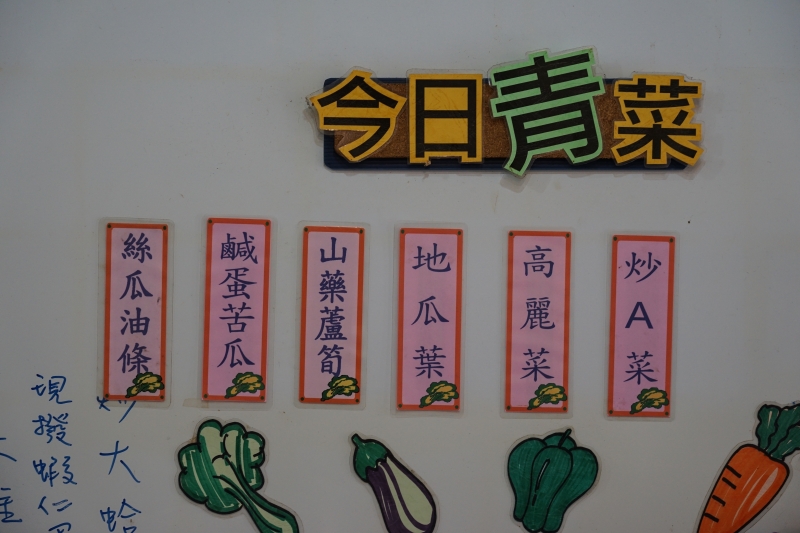 今日青菜
炒A菜
高麗菜
地瓜葉
山藥蘆筍
鹹蛋苦瓜
絲瓜油條
炒大蛤
現撥蝦仁